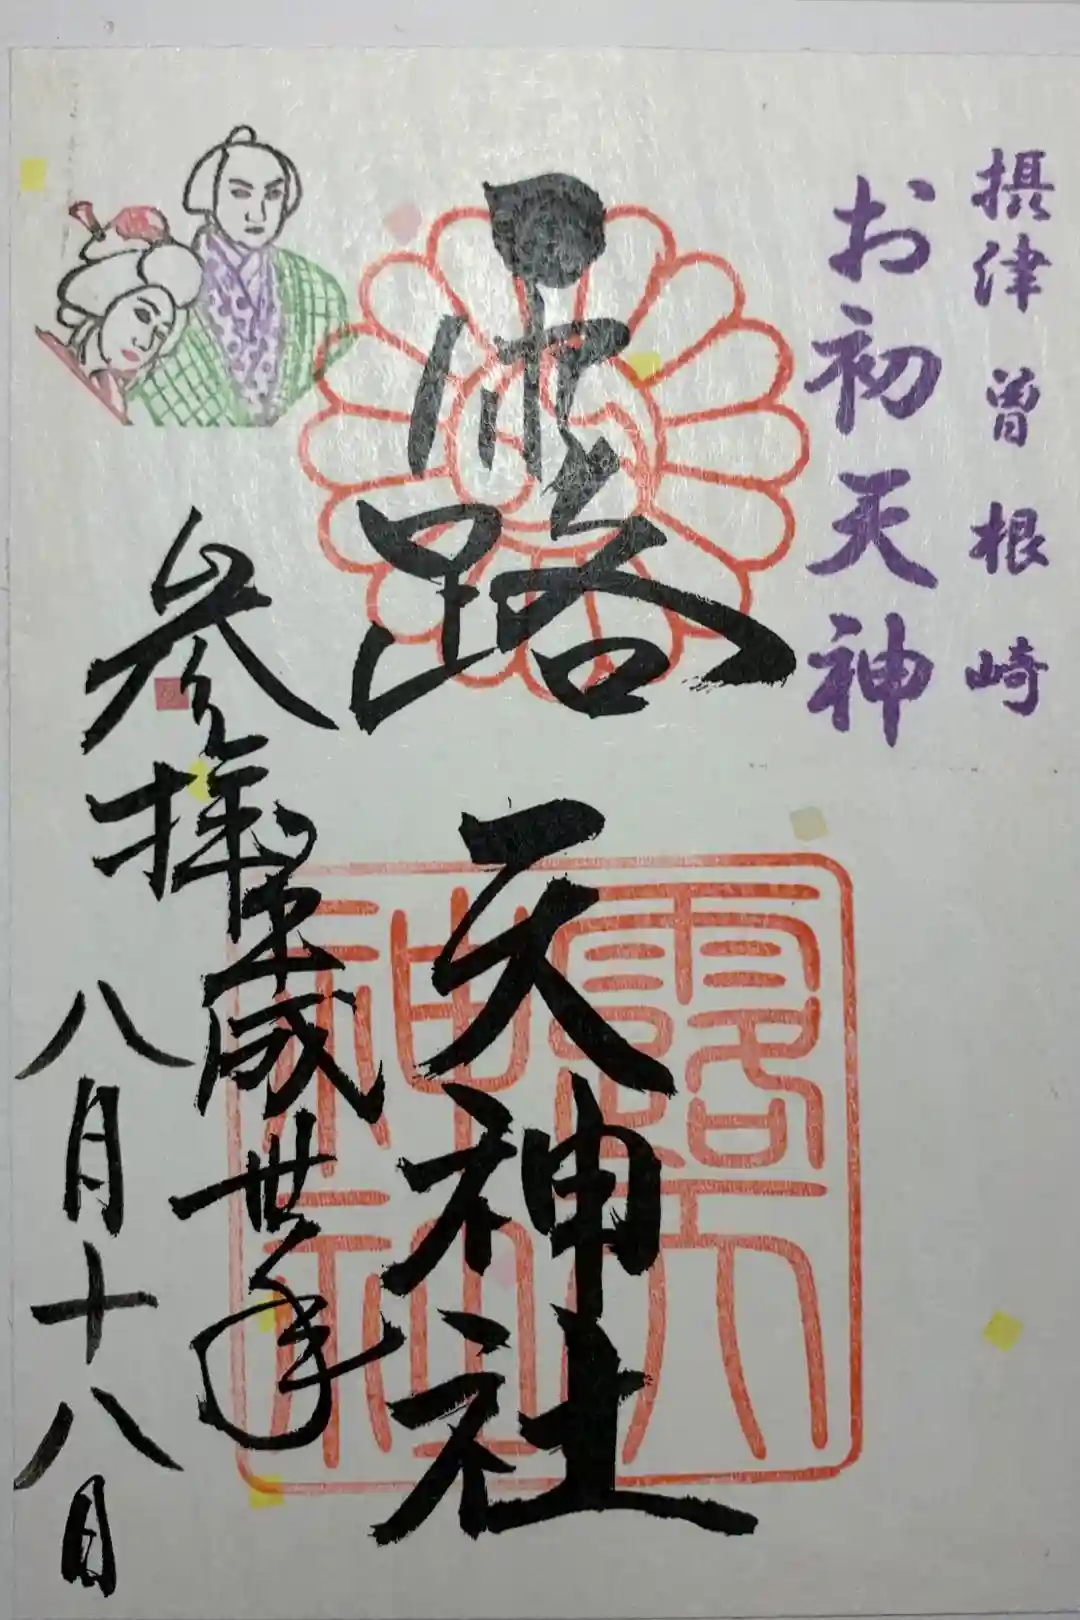 摂津 曽根崎
お初天神
露天神社
露天
神社
参拝
平成丗年
八月十八日